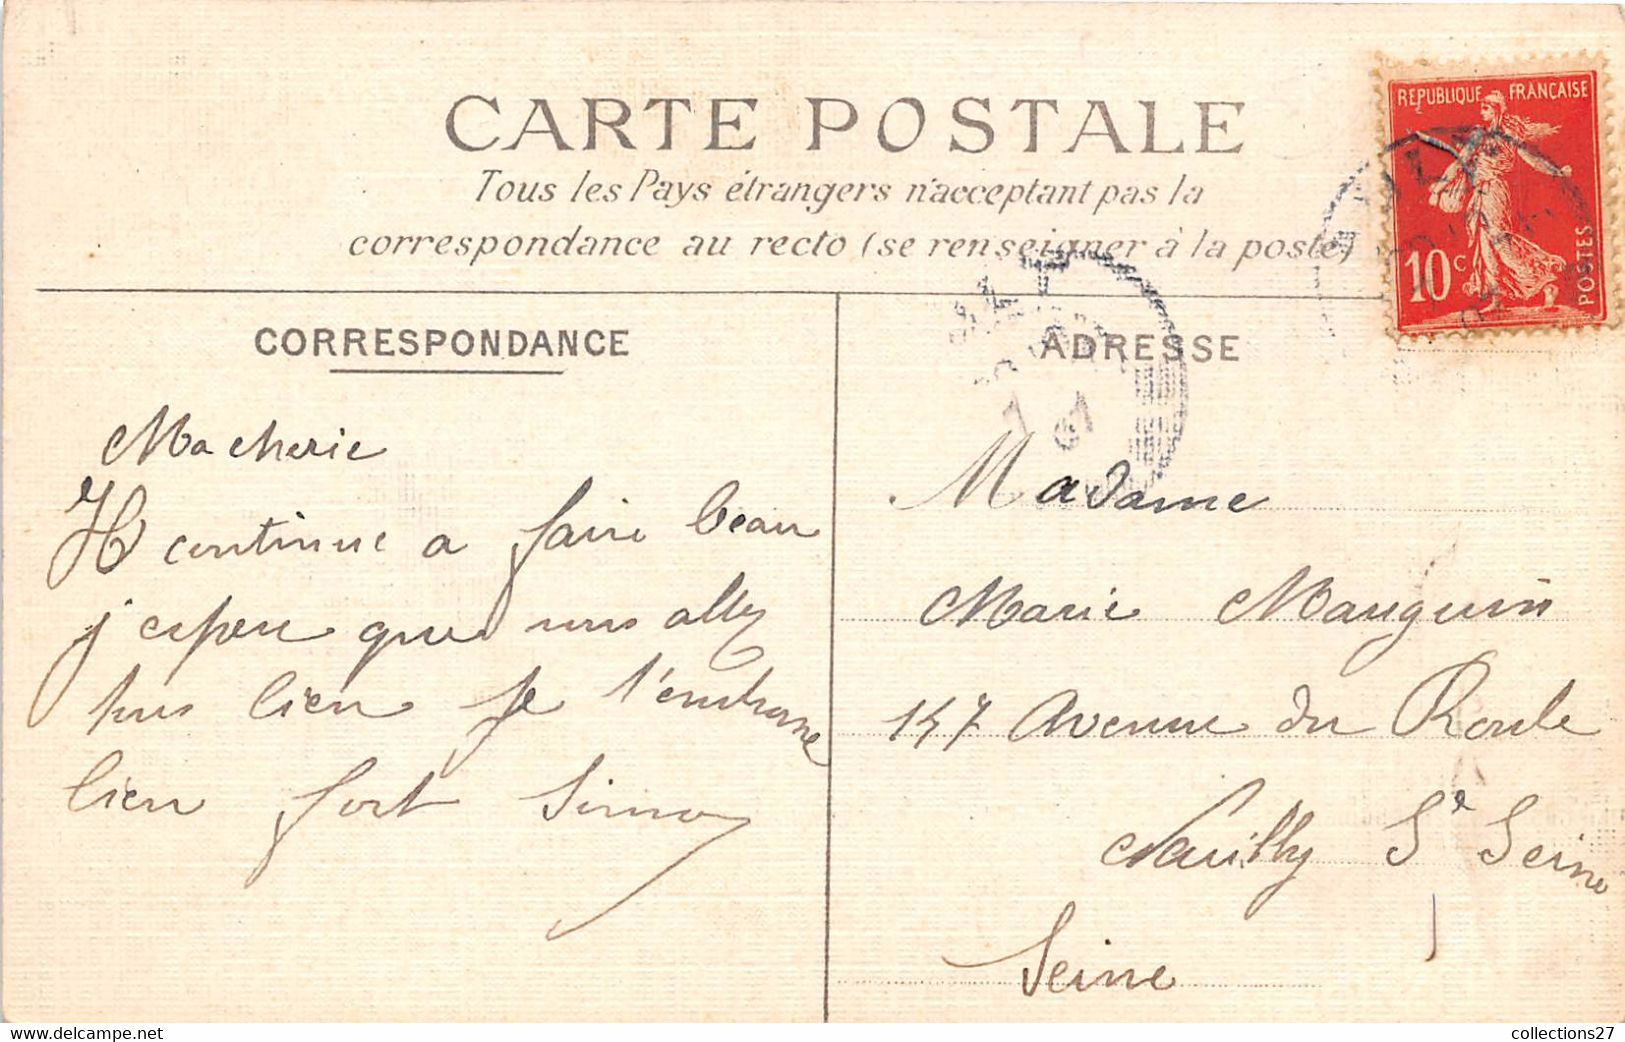 CARTE POSTALE
Tous les Pays étrangers n'acceptant pas la
correspondance au recto (se renseigner à la poste)
REPUBLIQUE FRANÇAISE
10 c
POSTES
CORRESPONDANCE
ADRESSE
Ma cherie
Il continue a faire beau
j'espere que vous allez
tous bien je t'embrasse
bien fort Simon
Madame
Marie Mauguin
147 Avenue du Roule
Neuilly Sr Seine
Seine
07
www.delcampe.net
collections27